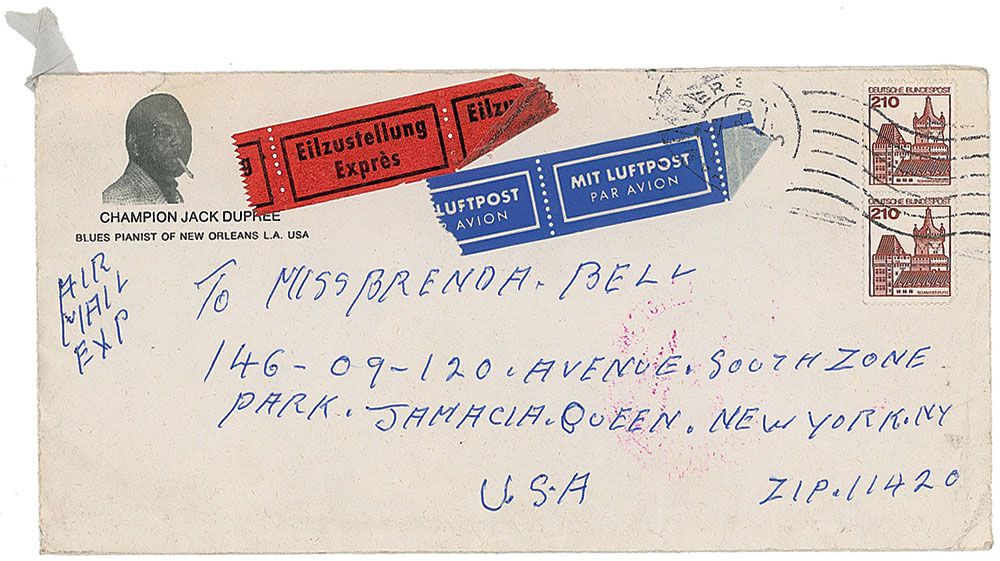 CHAMPION JACK DUPREE
BLUES PIANIST OF NEW ORLEANS L.A. USA
g
Eilzustellung
Exprès
Eilzu
LUFTPOST
AVION
MIT LUFTPOST
PAR AVION
DEUTSCHE BUNDESPOST
210
DEUTSCHE BUNDESPOST
210
AIR
MAIL
EXP
To MISS BRENDA. BELL
146-09-120. AVENUE. SOUTH ZONE
PARK. JAMACIA. QUEEN. NEW YORK. NY
U.S.A ZIP. 11420